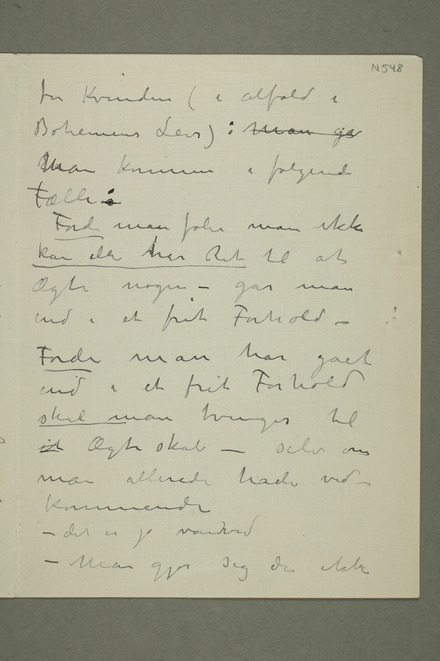 N 548
for Kvinden (i alfald i
Bohemens Leir) : man gå
Man kommer i følgende
Fælde
Fordi man føler man ikke
kan eller har Ret til at
ægte nogen – går man
ind i et frit Forhold –
Fordi man har gået
ind i et frit Forhold
skal man tvinges til
et Ægteskab – selv om
man allerede hader ved-
kommende
– det er jo vanvid
– Man gjør sig da ikke